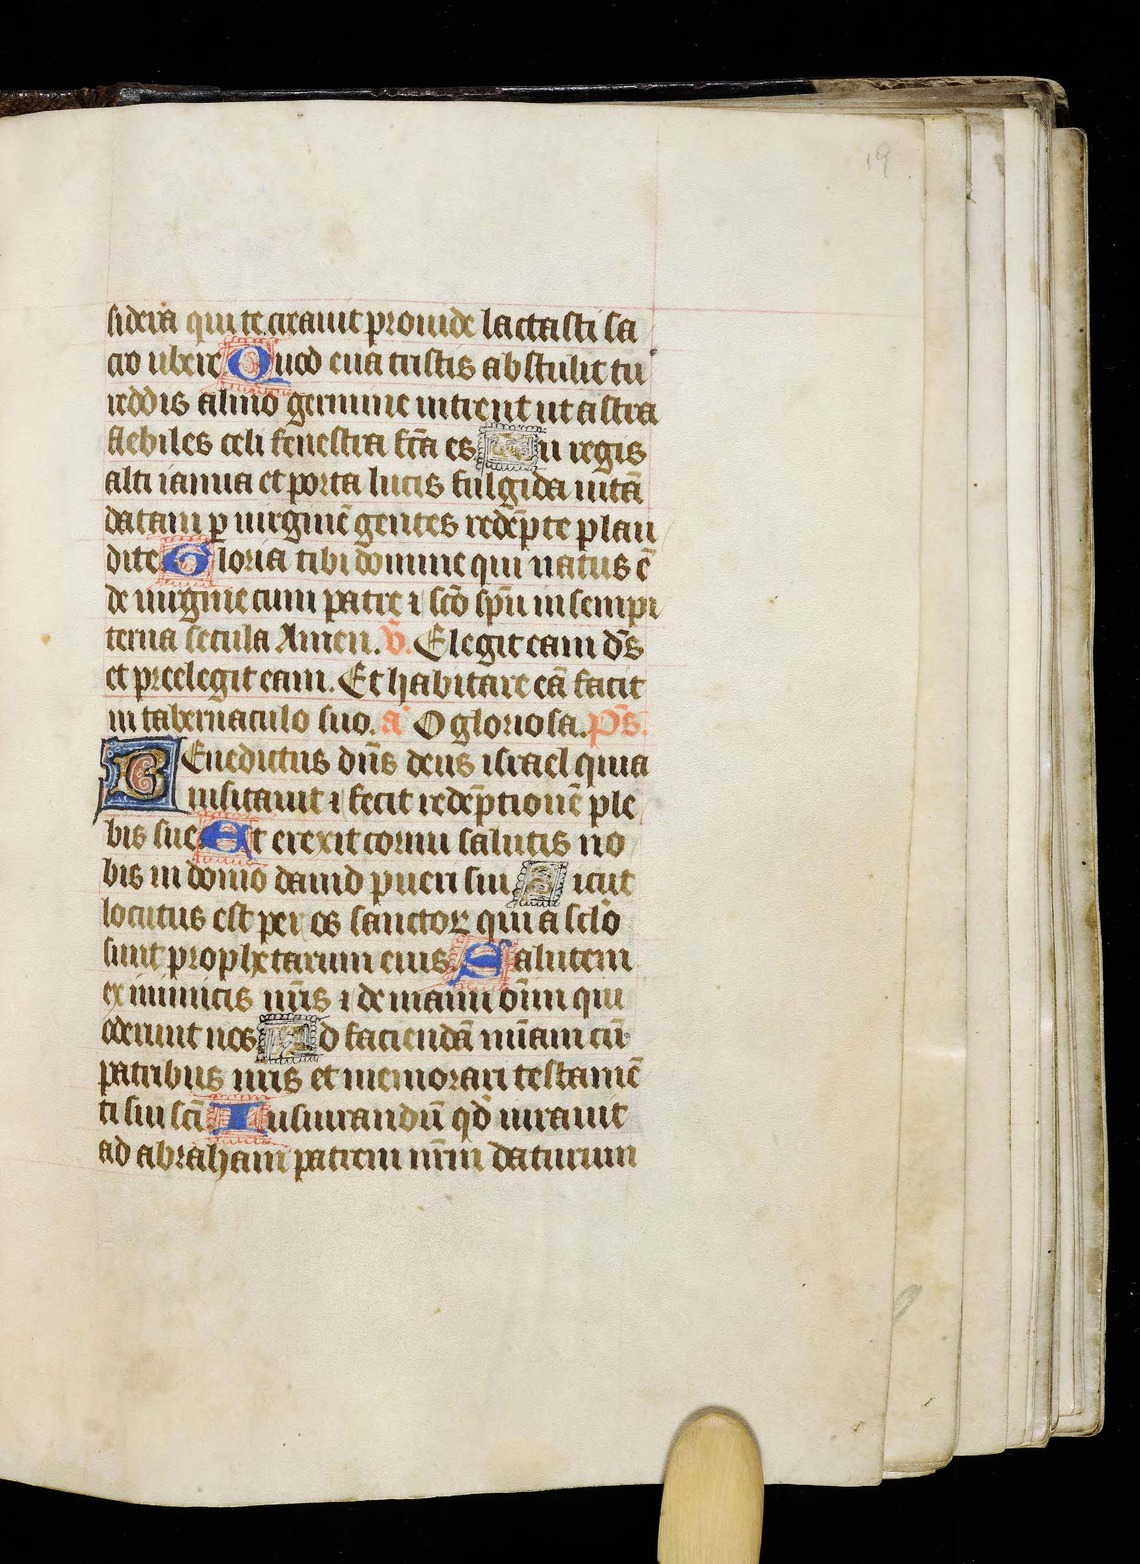 19
sidera qui te creauit prouide lactasti sa
cro ubere Quod eua tristis abstulit tu
reddis almo germine intrent ut astra
flebiles celi fenestra fc̄a es Tu regis
alti ianua et porta lucis fulgida uitā
datam p̱ uirginē gentes redēpte plau
dite Gloria tibi domine qui natus ē
de uirgine cum patre ⁊ sc̄o sp̄u in sempi
terna secula Amen. v̄. Elegit eam dn̄s
et preelegit eam. Et habitare eā facit
in tabernaculo suo. a᷎ O gloriosa. p̄s.
BEnedictus dn̄s deus israel quia
uisitauit ⁊ fecit redēptionē ple
bis sue Et erexit cornu salutis no
bis in domo dauid pueri sui Sicut
locutus est per os sanctoꝝ qui a sclo
sunt prophetarum eius Salutem
ex inimicis nr̄is ⁊ de manu oīm qui
oderunt nos Ad faciendā mīam cū
patribus nr̄is et memorari testamē
ti sui scī Iusiurandū qd̄ iurauit
ad abraham patrem nr̄m daturum